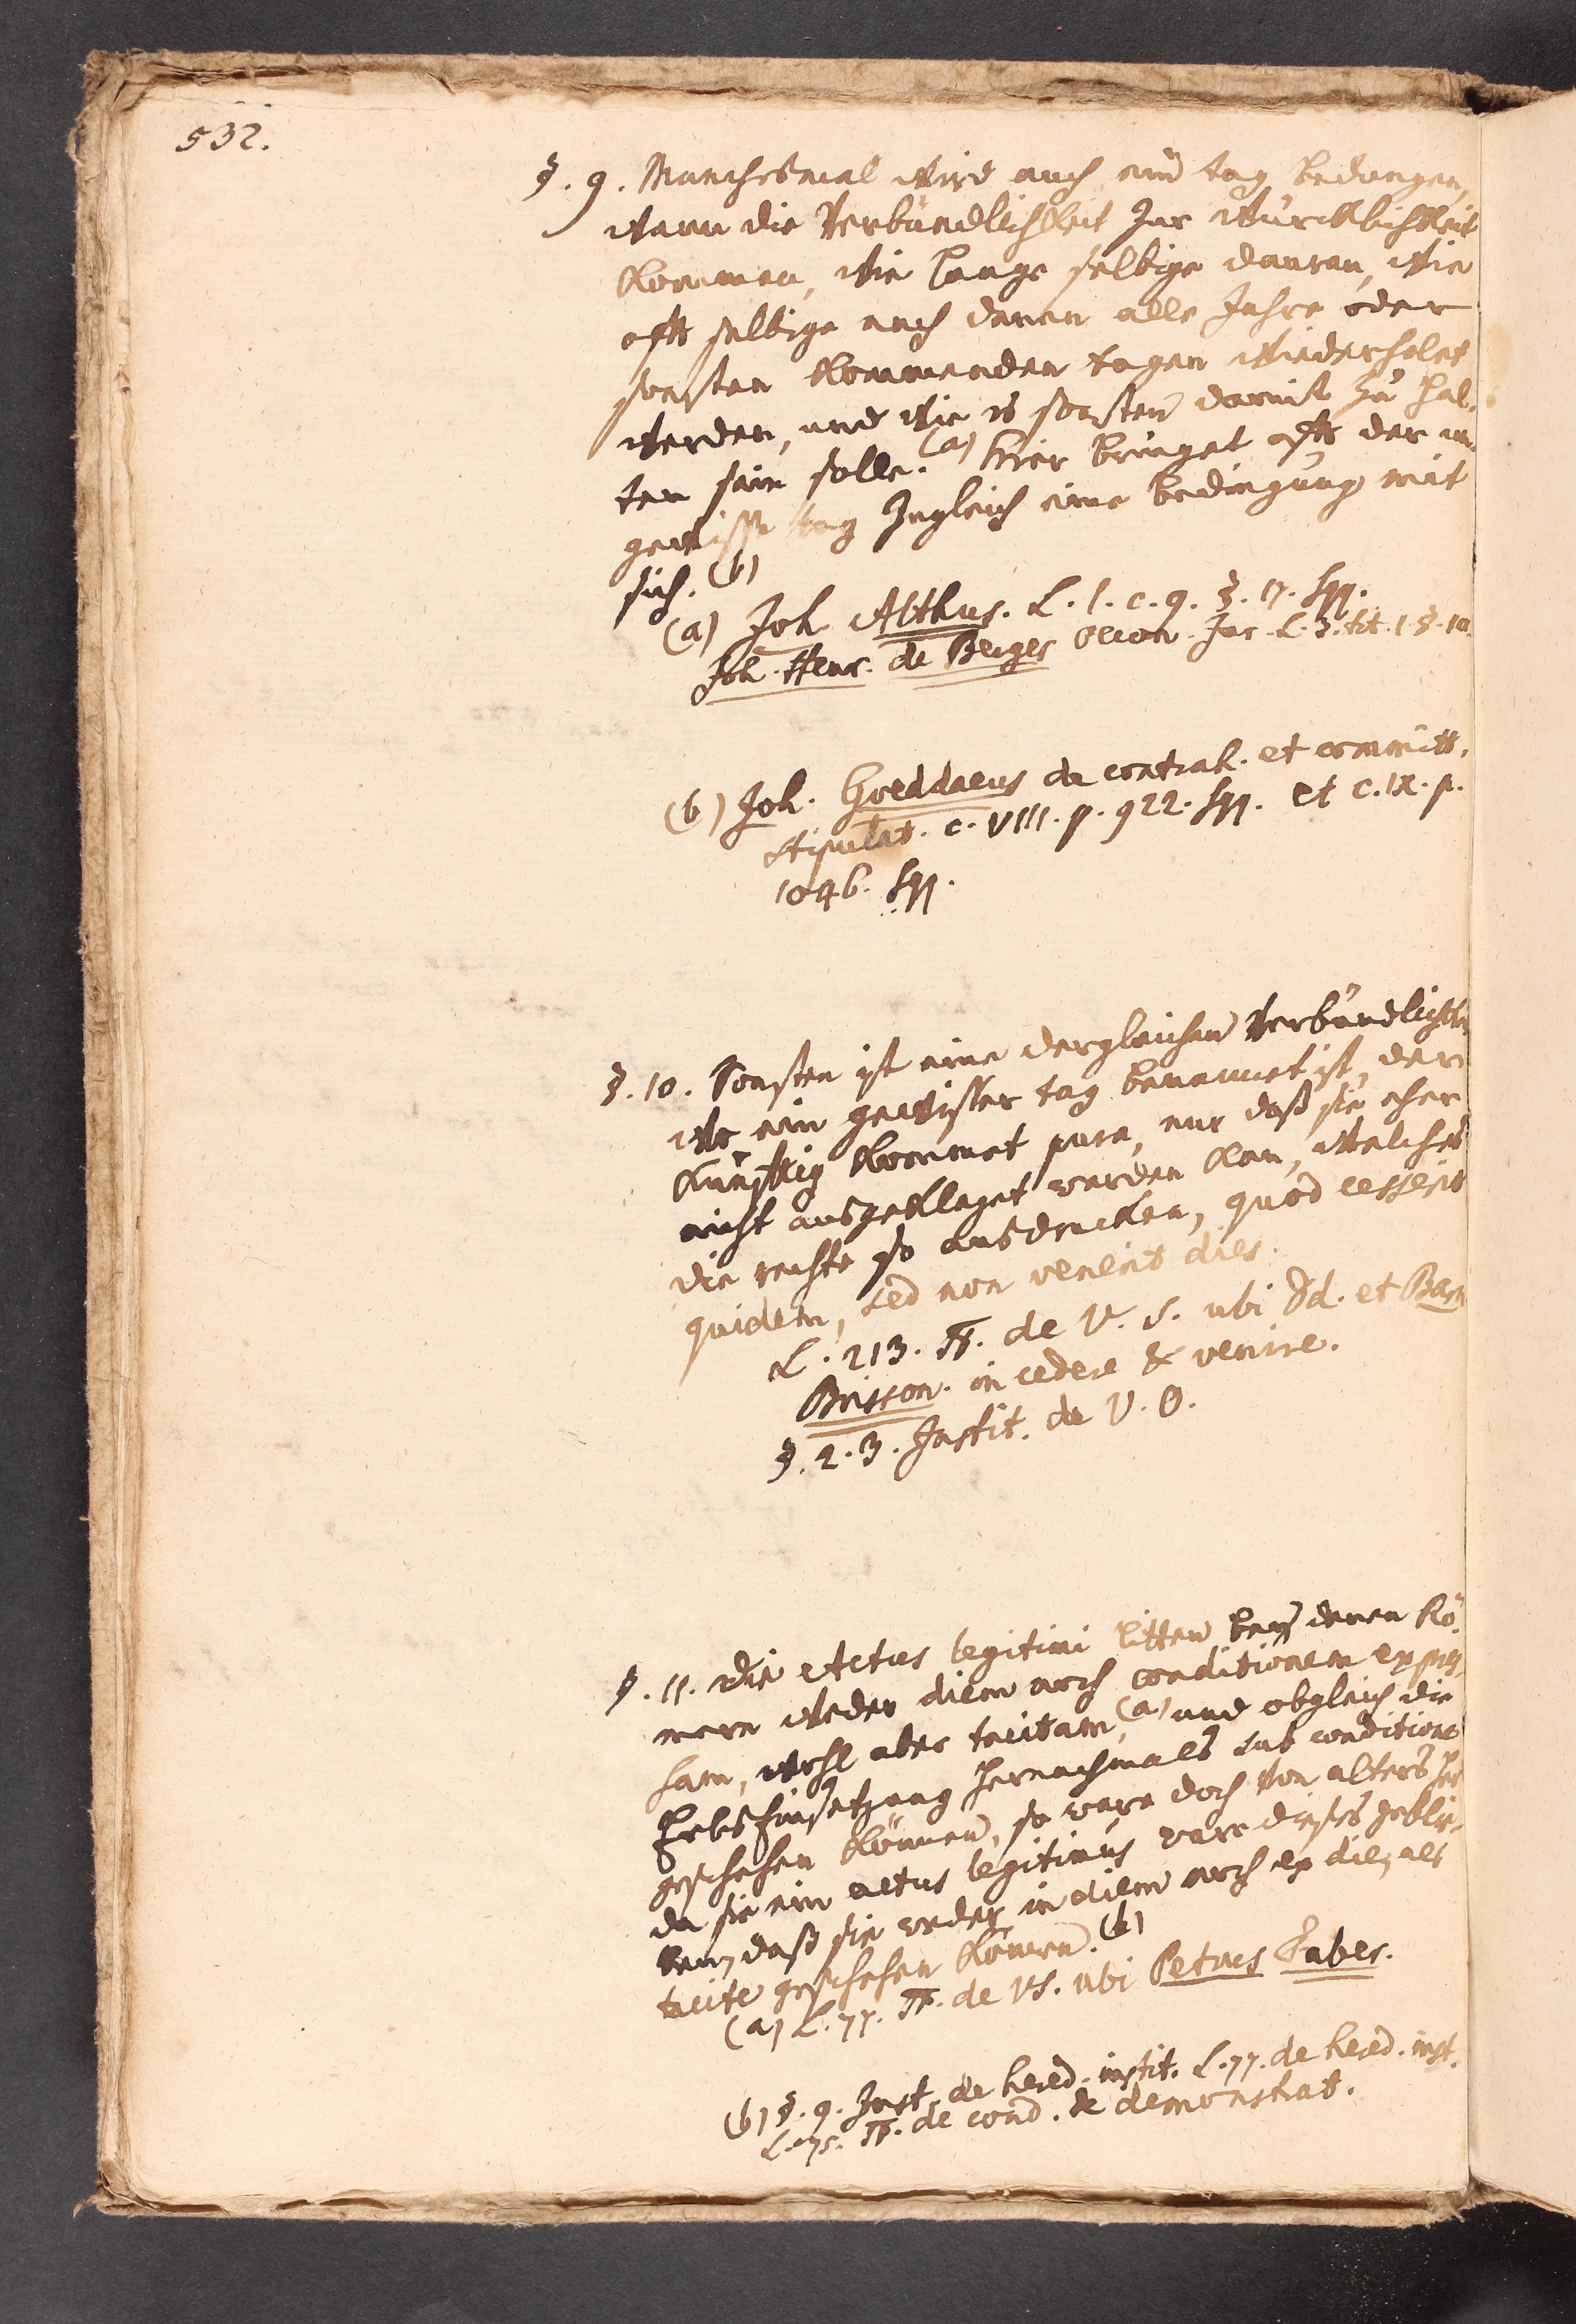 532.
§. 9. Manchesmal wird auch ein tag bedungen,
wann die Verbündlichkeit zur würcklichkeit
kommen, wie lange selbige dauren, wie
offt selbige nach denen alle Jahre oder
sonsten kommenden tagen wiederholet
werden, und wie es sonsten damit zu hal-
ten sein solle. (a) Hier bringet offt der un-
gewisse tag zugleich eine bedingung mit
sich. (b)
(a) Joh. Althus. L. 1. c. 9. §. 17. sqq.
Joh. Henr. de Berger Oecon. Jur. L. 3. tit. 1. §. 10.
(b) Joh. Goeddaeus de contrah. et committ.
stipulat. c. VIII. p. 922. sqq. et c. IX. p.
1046. sqq.
§. 10. Sonsten ist eine dergleichen Verbündlichkeit
wo ein gewisser tag benannt ist, der
künfftig kommet pura, nur daß sie eher
nicht ausgeklaget werden kan, welches
die rechte so ausdrucken, quod cesserit
quidem, sed non venerit dies.
L. 213. ff. de V. S. ubi Dd. et Barn.
Brisson. in cedere & venire.
§. 2. 3. Instit. de V. O.
§. 11. Die Actus legitimi litten bey denen Rö-
mern weder diem noch conditionem expres-
sam, wohl aber tacitam, (a) und obgleich die
Erbs Einsetzung hernachmals sub conditione
geschehen können, so ware doch von alters her
da sie ein actus legitimus ware dieses geblie-
ben, daß sie weder in diem noch ex die, als
tacite geschehen können. (b)
(a) L. 77. ff. de VS. ubi Petrus Faber.
(b) §. 9. Inst. de hered. instit. L. 77. de hered. inst.
L. 75. ff. de cond. & demonstrat.